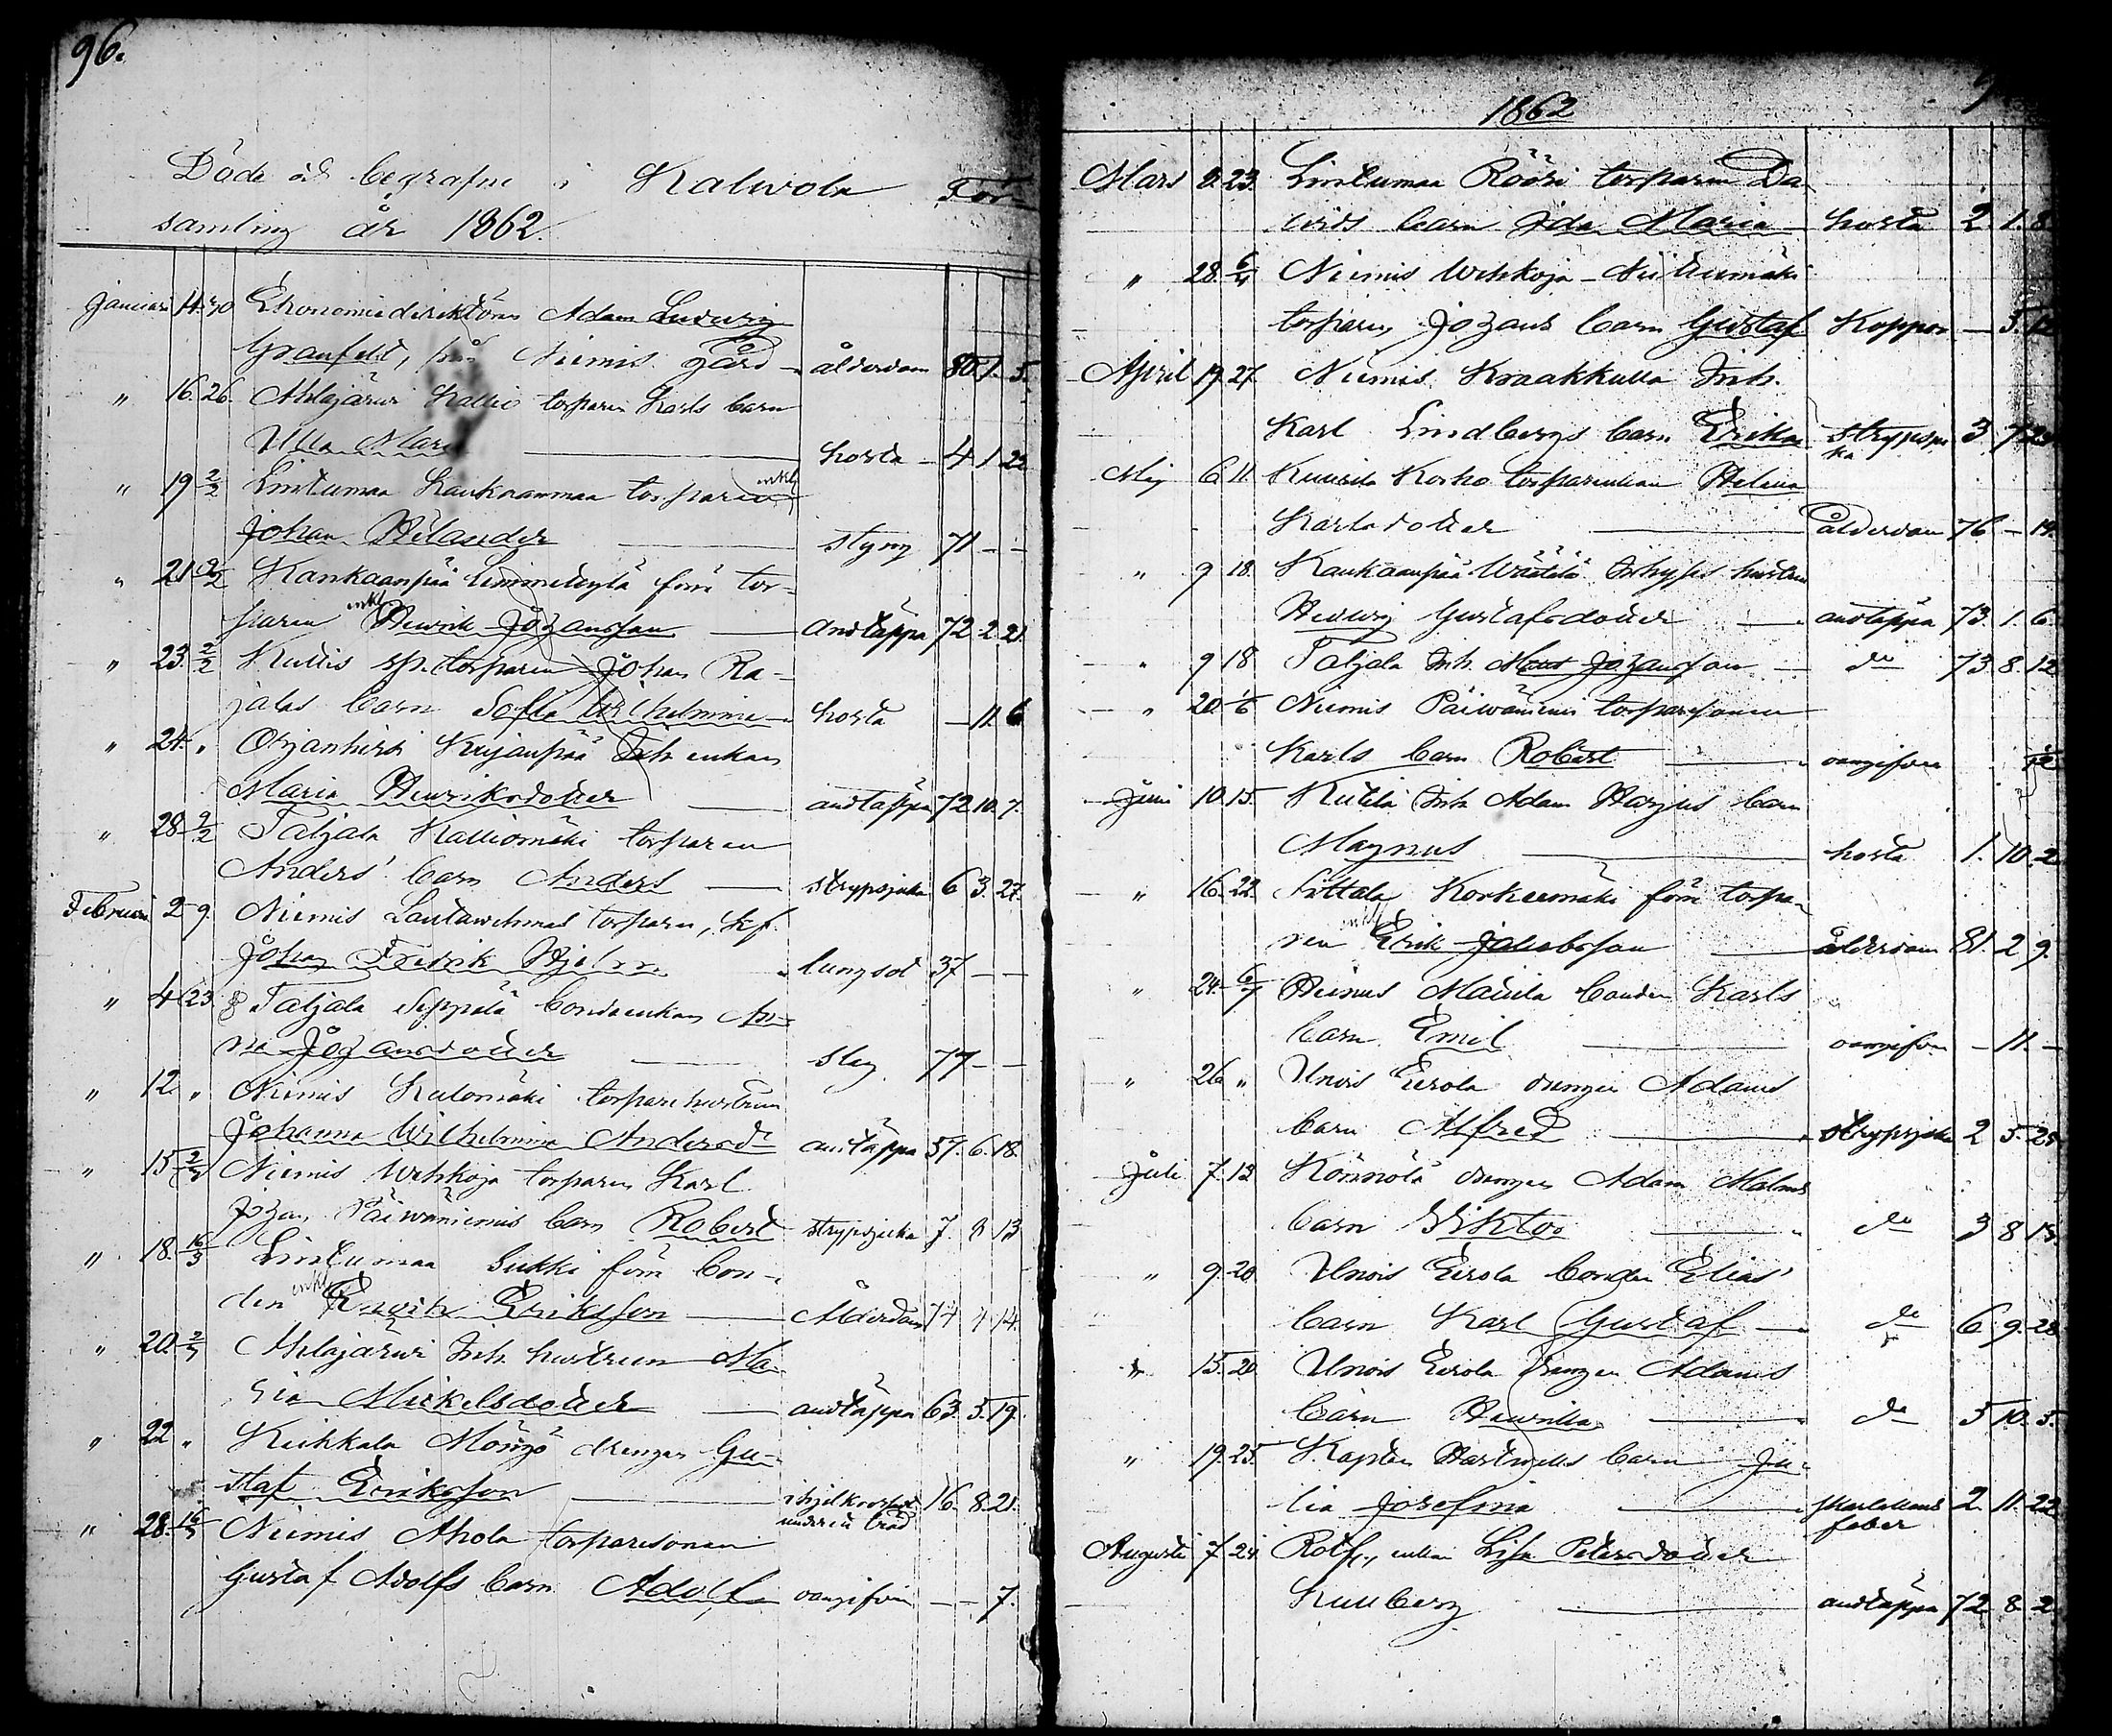 96.
Döde och begrafne i Kalwola För-
samling år 1862.
Januari 14. Ekonomiedirektören Adam Ludwig
Granfeldt, från Niemis gård ålderdom 80. 1. 5.
" 16. 26. Ahlajärwi Kallio torparen Karls barn
Ulla Maria hosta 4 1 22
" 19 2/2 Lintumaa Kaukaanmaa torparen enkl.
Johan Helander styng 71 - -
" 21. 2/2 Kankaanpää Lemmetyylä förre tor-
paren enkl. Henrik Johansson andtäppa 72. 2. 21.
" 23. 2/2 Kutis sp. torparen Johan Ra-
jalas barn Sofia Wilhelmina hosta - 11. 6
" 24. " Orjanhirsi Kujanpää Inh. enkan
Maria Henriksdotter andtäppa 72. 10. 7.
" 28. 2/2 Taljala Kalliomäki torparen
Anders' barn Anders strypsjuka 6 3. 27.
Februari 2 9. Niemis Lautawehmas torparen, Skf.
Johan Fredrik Hjelm lungsot 37 - -
" 4 23 Taljala Seppälä bondeenkan An-
na Johansdotter slag 77 - -
" 12. " Niemis Kulomäki torparehustrun
Johanna Wilhelmina Andersd:r andtäppa 37. 6. 18.
" 15 2/3 Niemis Wehkoja torparen Karl
Johan Päiwäniemis barn Robert strypsjuka 7. 8 13
" 18. 16/3 Lintumaa Sukki förre bon-
den enkl. Henrik Eriksson Ålderdom 74 4 14.
" 20. 2/3 Ahlajärwi Inh. hustrun Ma-
ria Mickelsdotter andtäppa 63. 5. 19.
" 22 " Keikkala Mongo drengen Gu-
staf Eriksson ihjelkrossad 16. 8. 21.
under ett träd
" 28. 16/3 Niemis Ahola torparesonen
Gustaf Adolfs barn Adolf oangifven - - 7.
1862
Mars 8. 23. Lintumaa Rööri torparen Da-
vids barn Ida Maria hosta 2. 1. 8
" 28. 6/4 Niemis Wehkoja-Niitumäki
torparen Johans barn Gustaf Koppor - 5. 12
April 19. 27. Niemis Kraakkulla Inh.
Karl Lindbergs barn Erika strypsju- 3 7 23
ka
Maj 6 11. Kuurila Korho torpareenkan Helena
Karlsdotter ålderdom 76 - 19.
" 9 18. Kankaanpää Wäätälä Inhyses hustru
Hedwig Gustafsdotter andtäppa 73. 1. 6.
" 9 18 Taljala Inh. Johansson d:o 73. 8. 12
" 20. 1/6 Niemis Päiwäniemi torparesonen
Karls barn Robert oangifven
Juni 10. 15. Kutila Inh. Adam Harjus barn
Magnus hosta 1. 10 2
" 16. 22. Sittala Korkeemäki förre torpa-
ren enkl. Erik Jakobsson ålderdom 81. 2 9.
" 24. 6/7 Heinus Mattila bonden Karls
barn Emil oangifven - 11. -
" 26 " Unois Eerola drengen Adams
barn Alfred strypsjuka 2 5. 25
Juli 7. 13 Könnölä drengen Adam Malms
barn Viktor d:o 3 8 15.
" 9. 20 Unois Eerola bonden Elias'
barn Karl Gustaf d:o 6 9. 28
" 15. 20 Unois Eerola drengen Adams
barn Henrika d:o 5 10. 5.
" 19. 25. Kapten Hartwalls barn Ju-
lia Josefina skarlakans 2. 11. 22
feber
Augusti 7 24. Rotfg., enkan Lisa Petersdotter
Kullberg andtäppa 72 8. 2